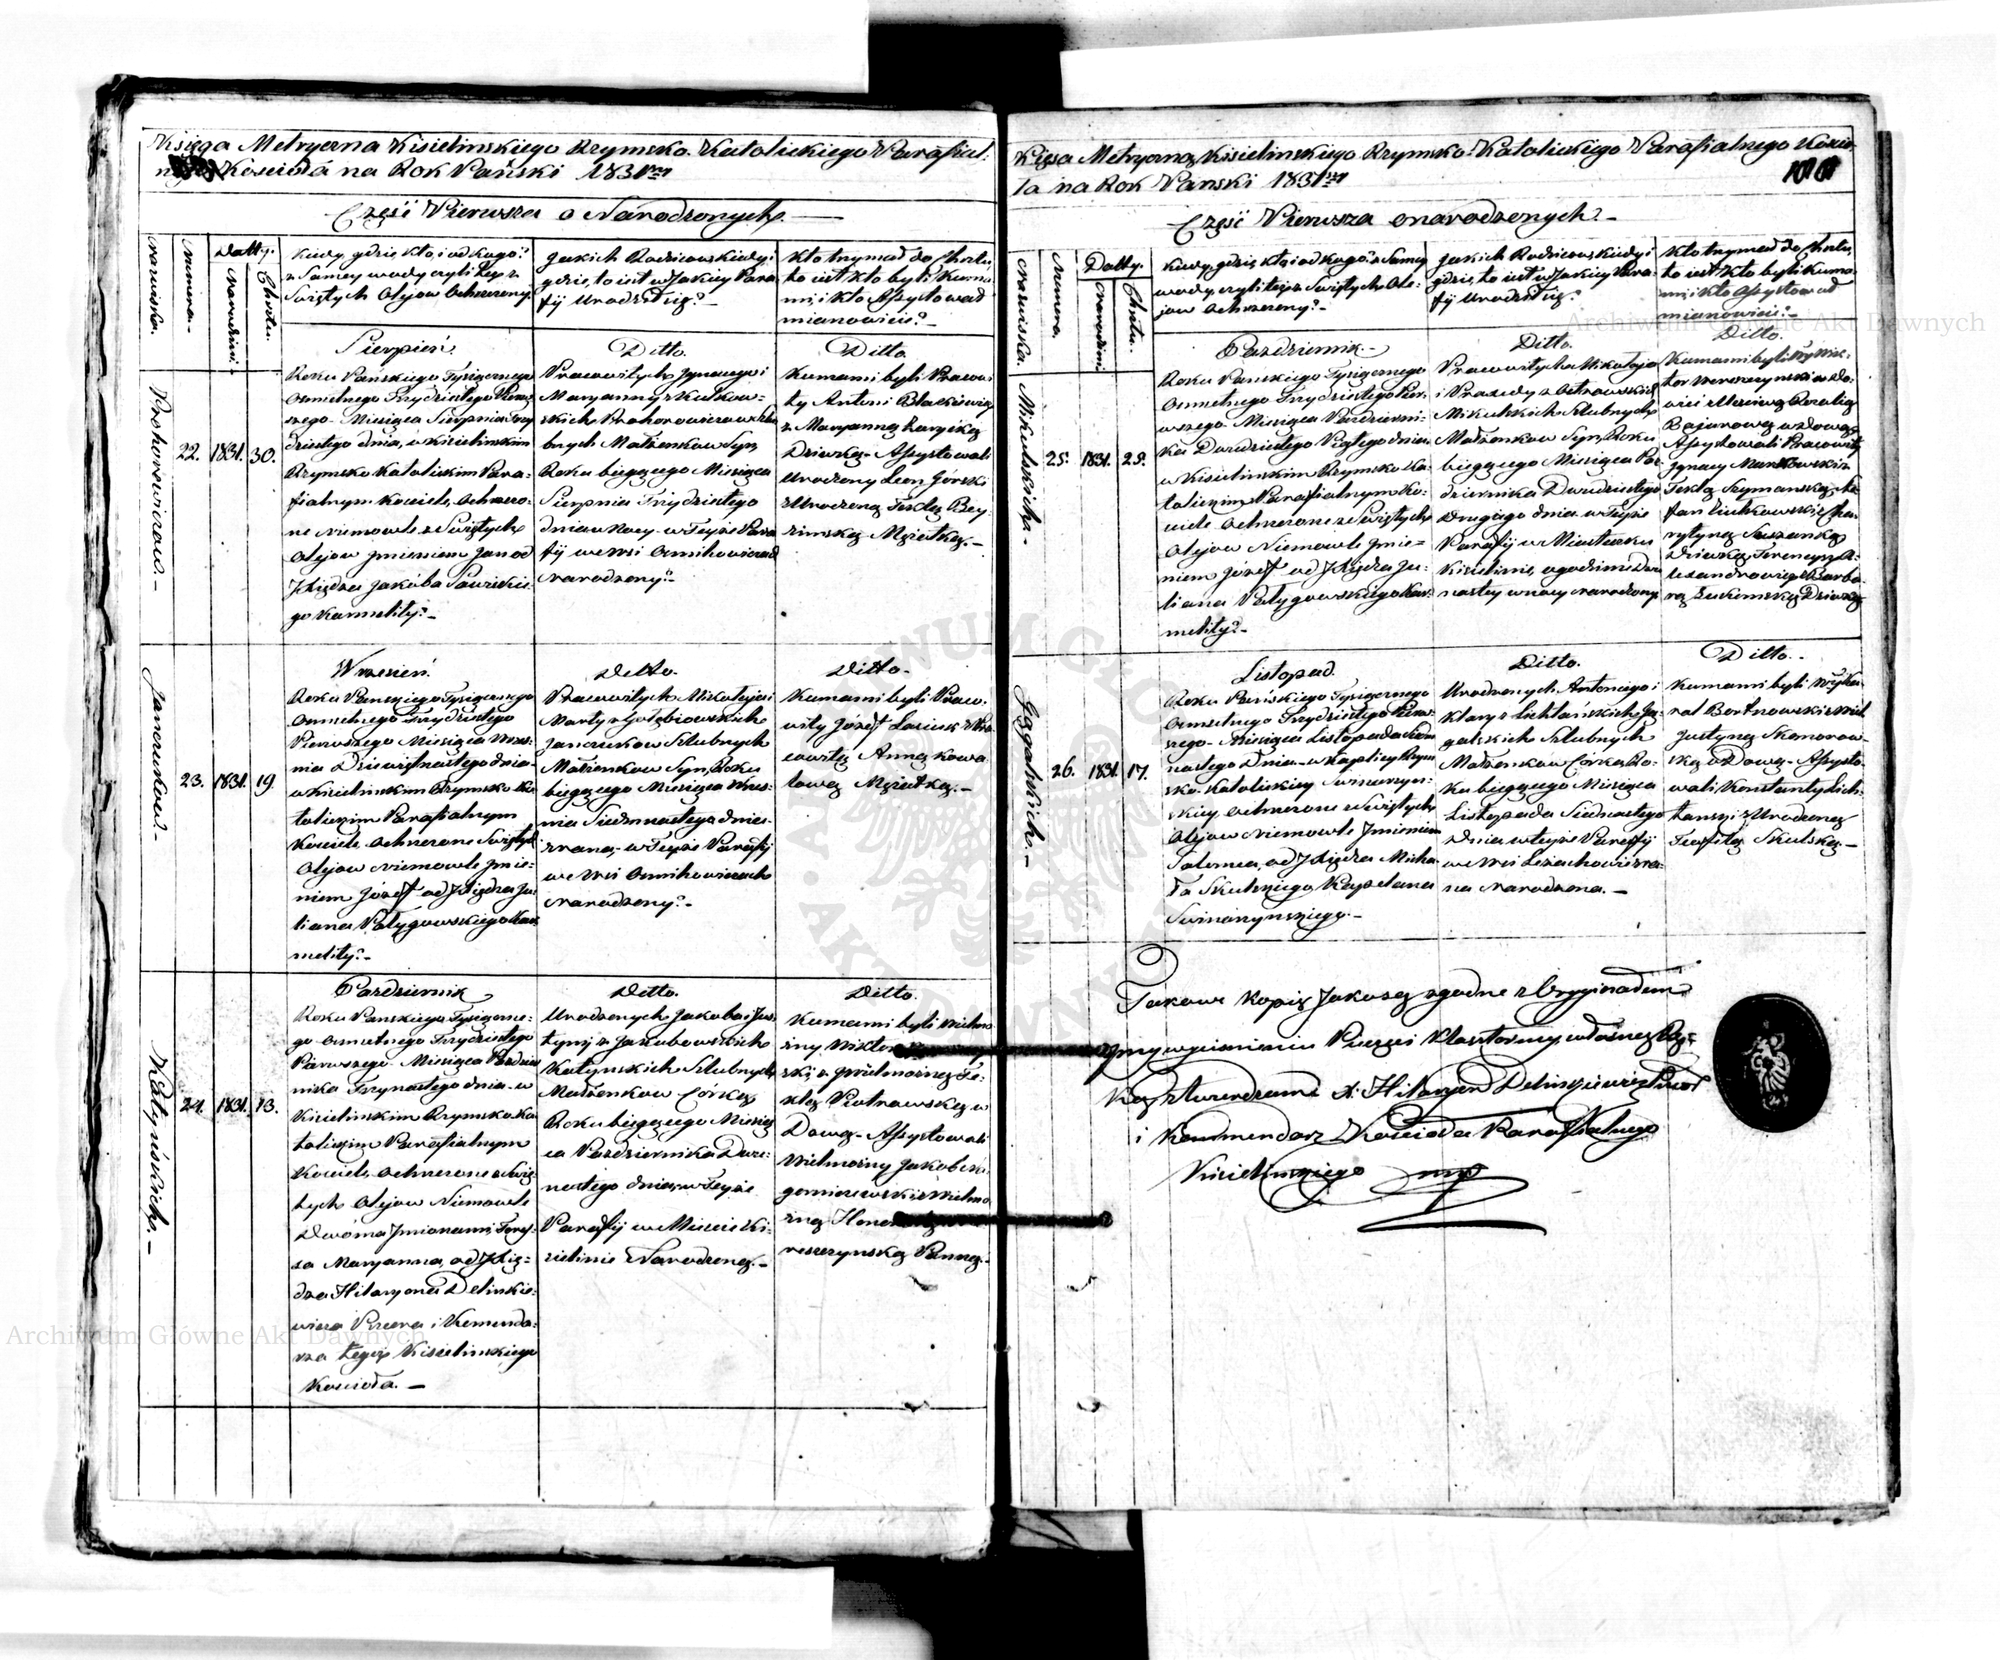 Księga Metryczna Kisielinskiego Rzymsko-Katolickiego Parafial:
Kościoła na Rok Pański 1831ny
Część Pierwsza o Narodzonych.
Nazwiska.
Numera.
Datty.
Narodzin:
Chrztu.
Kiedy, gdzie, kto, i od kogo?
z Samey wody czyli tez z
Swiętych Olejow Ochrzczony
Jakich Rodzicow kiedy i
gdzie, to iest w Jakiey Para
fij Urodził się?
Kto trzymał do Chrztu,
to iest kto byli Kuma
mi i kto Assystował
mianowicie?
Prohorowiczow.
22. 1831. 30.
Sierpień.
Roku Pańskiego Tysiącznego
Osmsetnego Trzydziestego Pierw
szego Miesiąca Sierpnia Trzy
dziestego dnia, w Kisielinskim
Rzymsko Katolickim Para:
fialnym Kościele, Ochrzczo:
ne Niemowle z Swiętych
Olejow Jmieniem Jan od
Xiędza Jakóba
go Karmelity?
Ditto.
Pracowitych Jgnacego i
Maryanny z Rutkow:
skich Prohorowiczow Szlu
bnych Małżonkow Syn,
Roku bieżącego Miesiąca
Sierpnia Trzydziestego
dnia w Nocy w Teyże Para
fij we Wsi Osmihowiczach
Narodzony?
Ditto
Kumami byli Pracowi
ty Antoni
z Maryanną
Dziewką Assystowali
Urodzony Leon Górski
z Urodzoną Teklą
Mężatką.
Janczukow.
23. 1831. 19.
Wrzesień.
Roku Panskiego Tysiącznego
Osmsetnego Trzydziestego
Pierwszego Miesiąca Wrze:
nia Dziewiętnastego dnia
w Kisielinskim Rzymsko Ka
tolickim Parafialnym
Kościele, Ochrzczone Swiętych
Olejow Niemowle Jmie:
niem Józef od Xiędza Ju
liana Pałygowskiego Kar
melity?
Ditto.
Pracowitych Mikołaja i
Marty z Gołębiowskich
Janczukow Szlubnych
Małżonkow Syn, Roku
bieżącego Miesiąca Wrześ:
nia Siedmnastego dnia
zrana, w Teyże Parafij
we Wsi Osmihowiczach
Narodzony?
Ditto.
Kumami byli Praco:
wity Józef Lasiuk z Pra
cowitą Anną Kowa
lową Mężatką.
Kątyńskich.
24. 1831. 13.
Pazdziernik
Roku Panskiego Tysiączne:
go Osmsetnego Trzydziestego
Pierwszego Miesiąca Pazdzier
nika Trzynastego dnia w
Kisielinskim Rzymsko Ka
tolickim Parafialnym
Kościele, Ochrzczone z Swię
tych Olejow Niemowle
Dwóma Jmionami, Tere:
sa Maryanna, od Xię:
dza Hilaryona Delinkie:
wicza Przeora i Kommenda:
rza tegoż Kisielinskiego
Kościoła.
Ditto.
Urodzonych Jakoba i Jus
tyny z Jakubowskich
Katynskich Szlubnych
Małżonkow Córka,
Roku bieżącego Miesią
ca Pazdziernika Dwu:
nastego dnia, w Teyże
Parafij w Miescie Ki:
sielinie Narodzona.
Ditto.
Kumami byli Wielmo
żny Wiktor
ski, z Wielmożną Te:
klą Piotrowską w
Dową Assystowali
Wielmożny Jakob
z Wielmo
żną
reszczynską Panną.
Księga Metryczna Kisielinskiego Rzymsko-Katolickiego Parafialnego Kościo
ła na Rok Pański 1831ny
Część Pierwsza o narodzonych.
Nazwiska.
Numera.
Datty.
Narodzin
Chrztu.
Kiedy, gdzie, kto, i od kogo? z Samey
wody czyli też z Swiętych Ole:
jow Ochrzczony?
Jakich Rodzicow kiedy i
gdzie, to iest w Jakiey Para
fij Urodził się?
Kto trzymał do Chrztu,
to iest kto byli Kuma
mi, i kto Assystował
mianowicie?
Mikulskich.
25. 1831. 25.
Pazdziernik
Roku Pańskiego Tysiącznego
Osmsetnego Trzydziestego Pier
wszego Miesiąca Pazdzierni
ka Dwudziestego Piątego dnia
w Kisielinskim Rzymsko Ka
tolickim Parafialnym Ko:
ściele Ochrzczone z Swiętych
Olejow Niemowle Jmie:
niem Józef od Xiędza Ju:
liana Pałygowskiego Kar
melity?
Ditto.
Pracowitych Mikołaja
i Praxedy z Ostrowskich
Mikulskich Szlubnych
Małżonkow Syn, Roku
bieżącego Miesiąca Paz
dziernika Dwudziestego
Drugiego dnia w Teyże
Parafij w Miasteczku
Kisielinie, o godzinie Dwu
nastey w nocy Narodzony
Ditto.
Kumami byli
z Do
Rozalią
Bajurową wdową
Assystowali Pracowity
Jgnacy z
Teklą Szymanską,
Dziewką
Dziewką
Gągalskich.
26. 1831. 17.
Listopad.
Roku Pańskiego Tysiącznego
Osmsetnego Trzydziestego Pierw
szego Miesiąca Listopada Siedm
nastego Dnia w Kaplicy Rzym
sko Katolickiey Swinarzyn:
skiey Ochrzczone z Swiętych
Olejow Niemowle Jmieniem
Salomea, od Xiędza Micha
ła Skulskiego Kapelana
Swinarzynskiego.
Ditto.
Urodzonych Antoniego i
Klary z Lichtańskich Gą:
galskich Szlubnych
Małżonkow Córka Ro:
ku bieżącego Miesiąca
Listopada Siedmnastego
Dnia w teyże Parafij
we Wsi zra
na Narodzona.
Ditto.
Kumami byli
z Wiel.
Justyną Skomorow
ską wdową Assysto
wali Konstanty Lich:
tanski z Urodzoną
Teofilą Skulską
Takowe Kopię Jakoszą zgodne z Oryginałem
przy wycisnieniu Pieczęci Klasztorney własną Rę:
ką stwierdzam X. Hilaryon Delinkiewicz Przeor
i Kommendarz Kościoła Parafialnego
Kisielinskiego mp
Archiwum Główne Akt Dawnych
Archiwum Główne Akt Dawnych